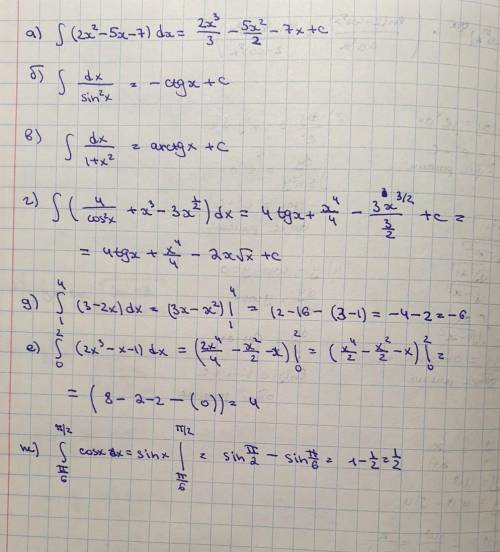 а) ∫ (2x² - 5x - 7) dx = 2x³/3 - 5x²/2 - 7x + c
б) ∫ dx/sin²x = - ctgx + c
в) ∫ dx/1+x² = arctgx + c
г) ∫ (4/cos²x + x³ - 3x^(1/2)) dx = 4 tgx + x⁴/4 - 3x^(3/2)/(3/2) + c =
= 4 tgx + x⁴/4 - 2x√x + c
д) ∫₁⁴ (3 - 2x) dx = (3x - x²) |₁⁴ = 12 - 16 - (3 - 1) = -4 - 2 = -6
е) ∫₀² (2x³ - x - 1) dx = (2x⁴/4 - x²/2 - x) |₀² = (x⁴/2 - x²/2 - x) |₀² =
= (8 - 2 - 2 - (0)) = 4
ж) ∫_(π/6)^(π/2) cosx dx = sinx |_(π/6)^(π/2) = sin π/2 - sin π/6 = 1 - 1/2 = 1/2